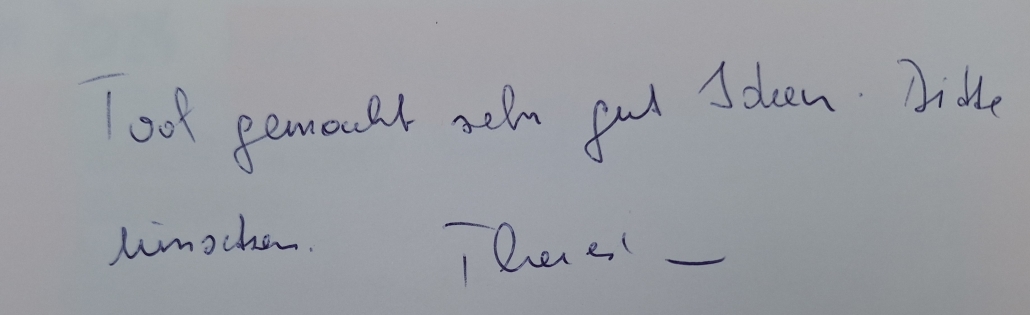 Tool gemacht sehr gut Ideen. Bitte
hinsetzen. Theresi —